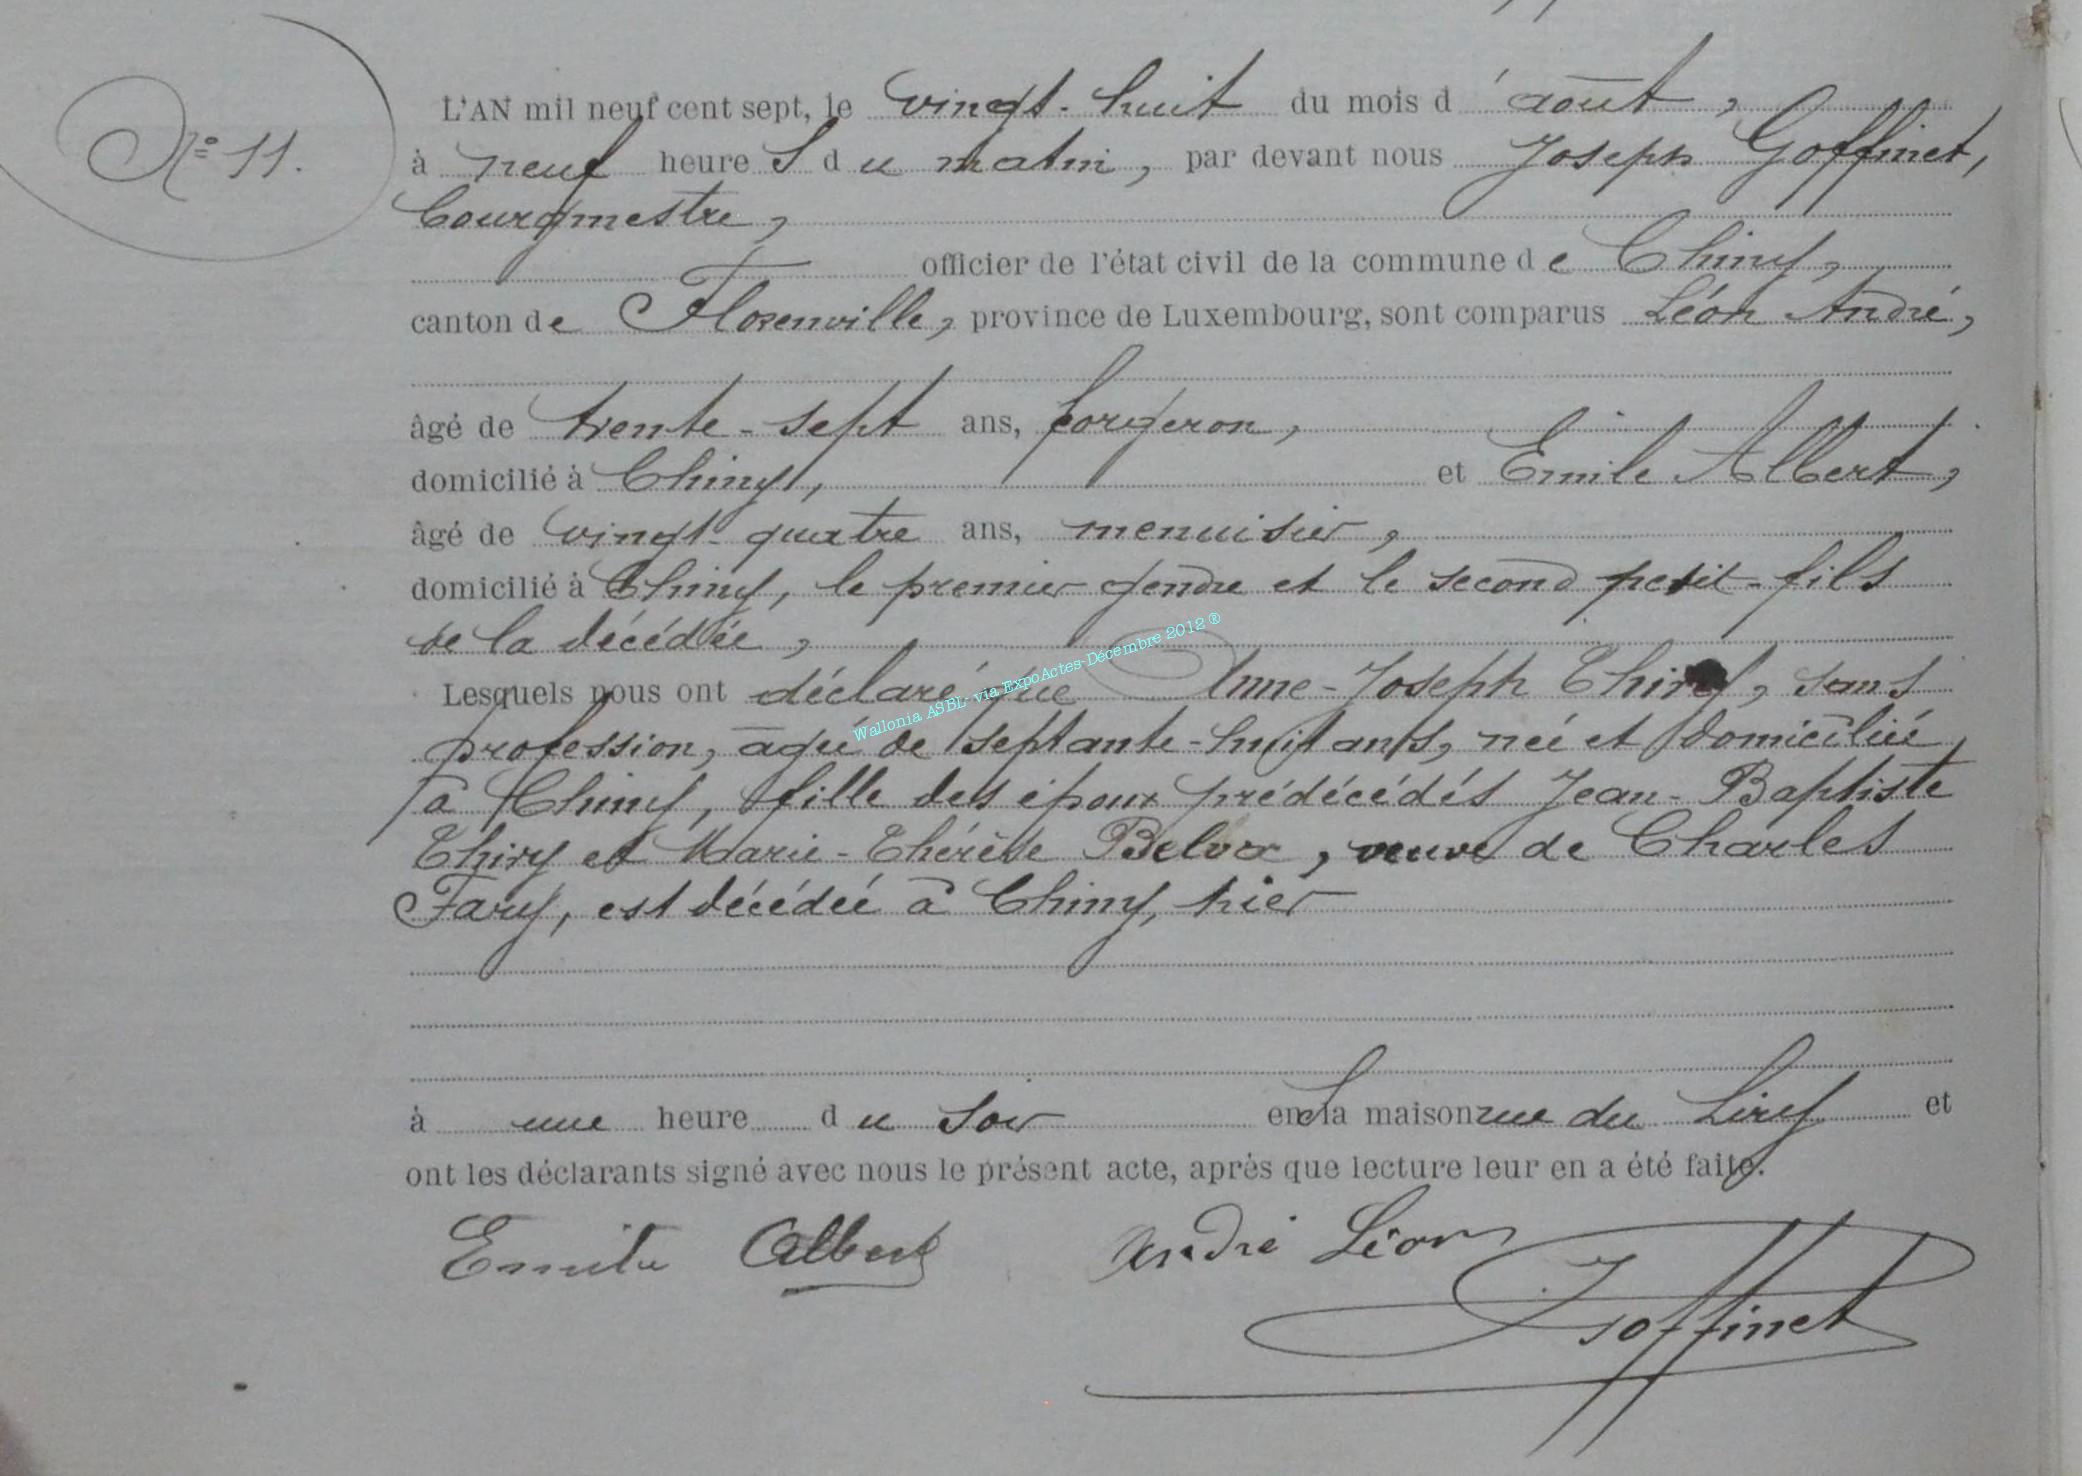 N° 11.
L'AN mil neuf cent sept, le vingt-huit du mois d'août,
à neuf heures du matin, par devant nous Joseph Goffinet,
bourgmestre,
officier de l'état civil de la commune de Chiny,
canton de Florenville, province de Luxembourg, sont comparus Léon André,
âgé de trente-sept ans, forgeron,
domicilié à Chiny, et Emile Albert,
âgé de vingt-quatre ans, menuisier,
domicilié à Chiny, le premier gendre et le second petit-fils
de la décédée,
Lesquels nous ont déclaré que Anne-Joseph Thiry, sans
profession, âgée de septante-huit ans, née et domiciliée
à Chiny, fille des époux prédécédés Jean-Baptiste
Thiry et Marie-Thérèse Belva, veuve de Charles
Fary, est décédée à Chiny, hier
à une heure du soir en sa maison rue du Liry et
ont les déclarants signé avec nous le présent acte, après que lecture leur en a été faite.
Emile Albert André Léon
J Goffinet
Wallonia ASBL- via ExpoActes-Décembre 2012 ®